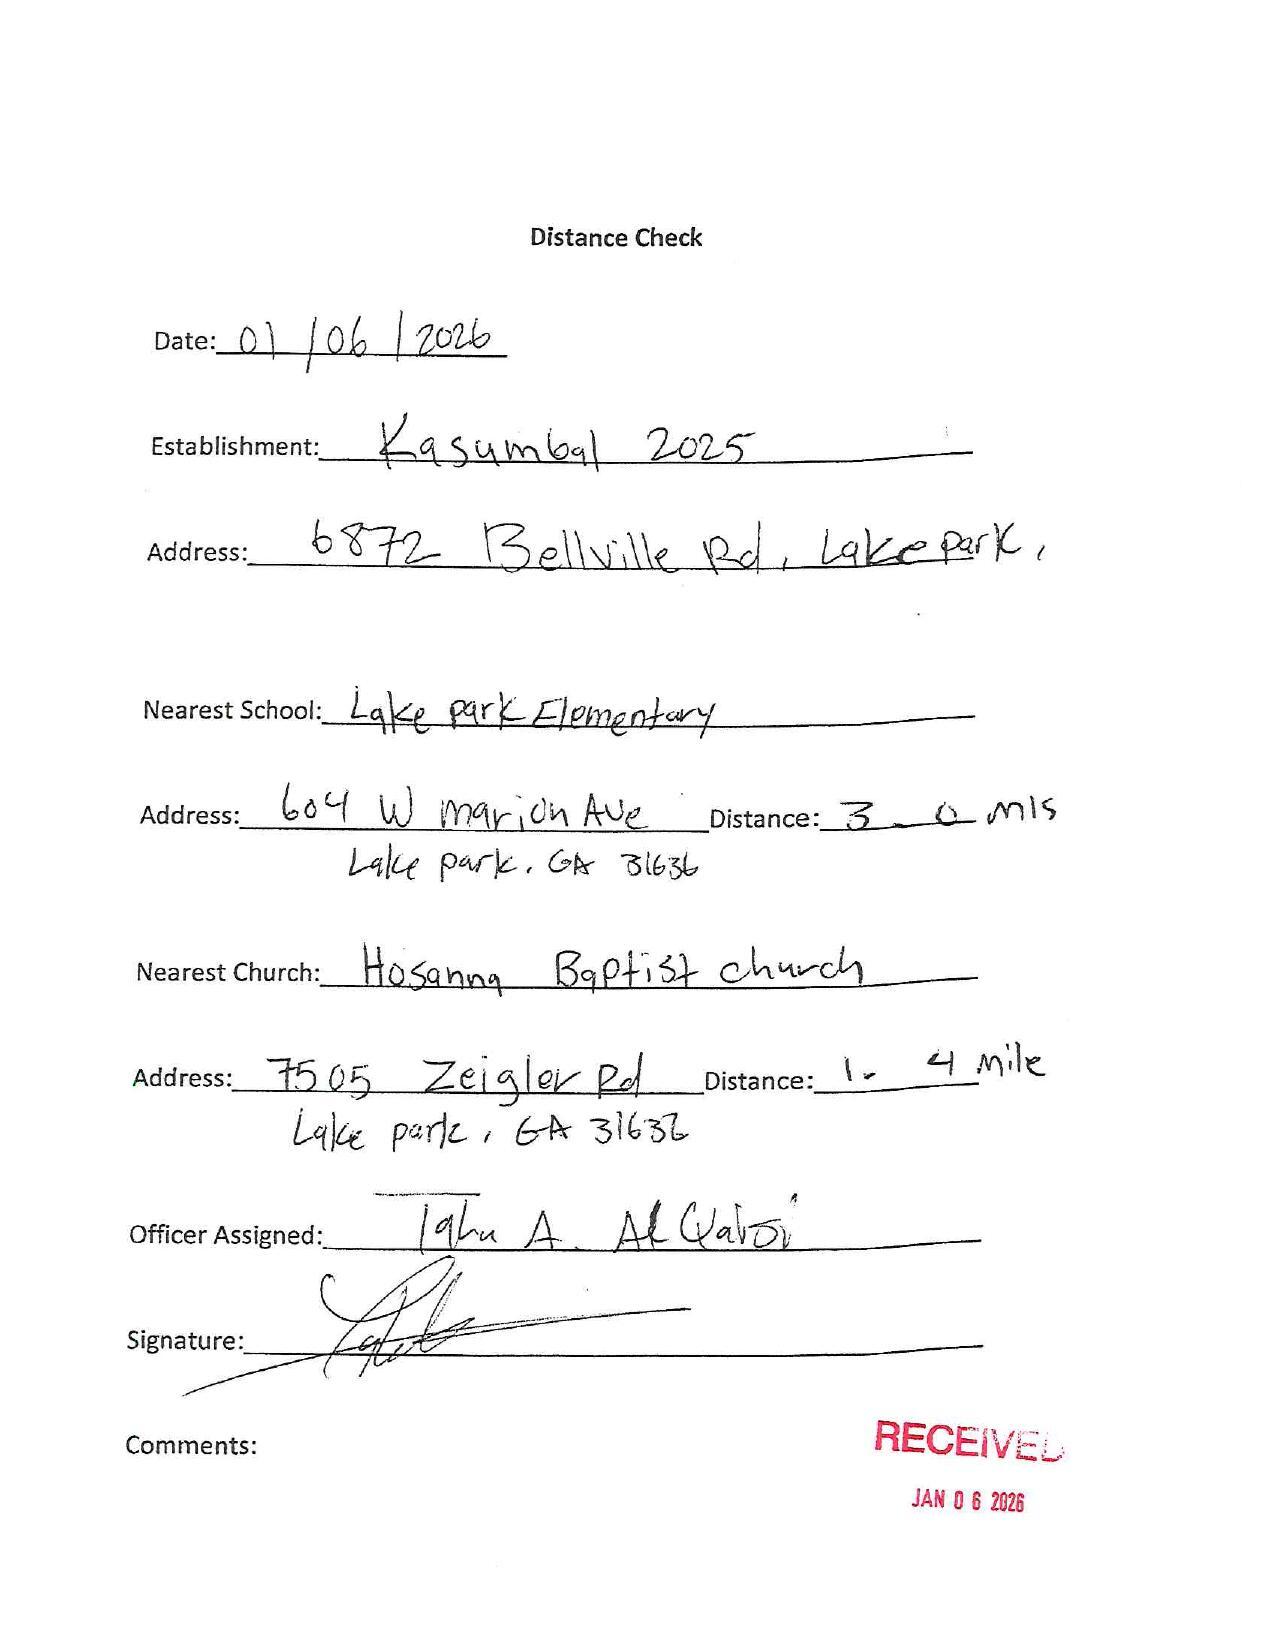 Distance Check
Date: 01/06/2026
Establishment: Kasumbal 2025
Address: 6872 Bellville Rd, Lake park,
Nearest School: Lake park Elementary
Address: 604 W Marion Ave Distance: 3.0 mls
Lake park, GA 31636
Nearest Church: Hosanna Baptist church
Address: 7505 Zeigler Rd Distance: 1.4 mile
Lake park, GA 31636
Officer Assigned: A.
Signature:
Comments:
RECEIVED
JAN 06 2026